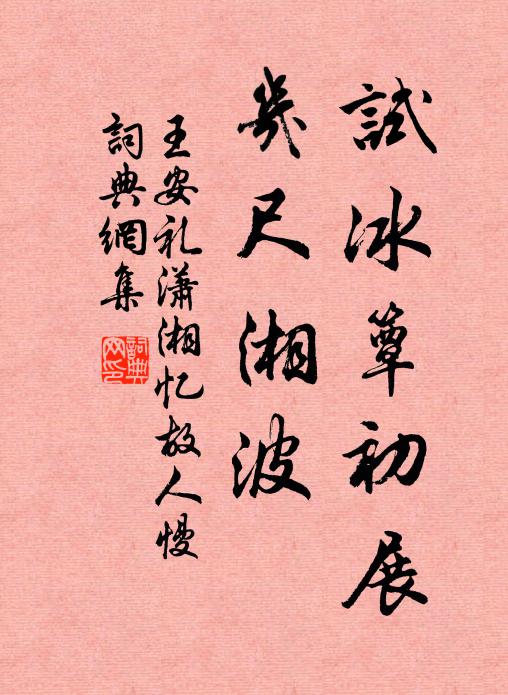 試冰簟初展
幾尺湘波
王安礼瀟湘忆故人慢
詞典網集
詞典網印